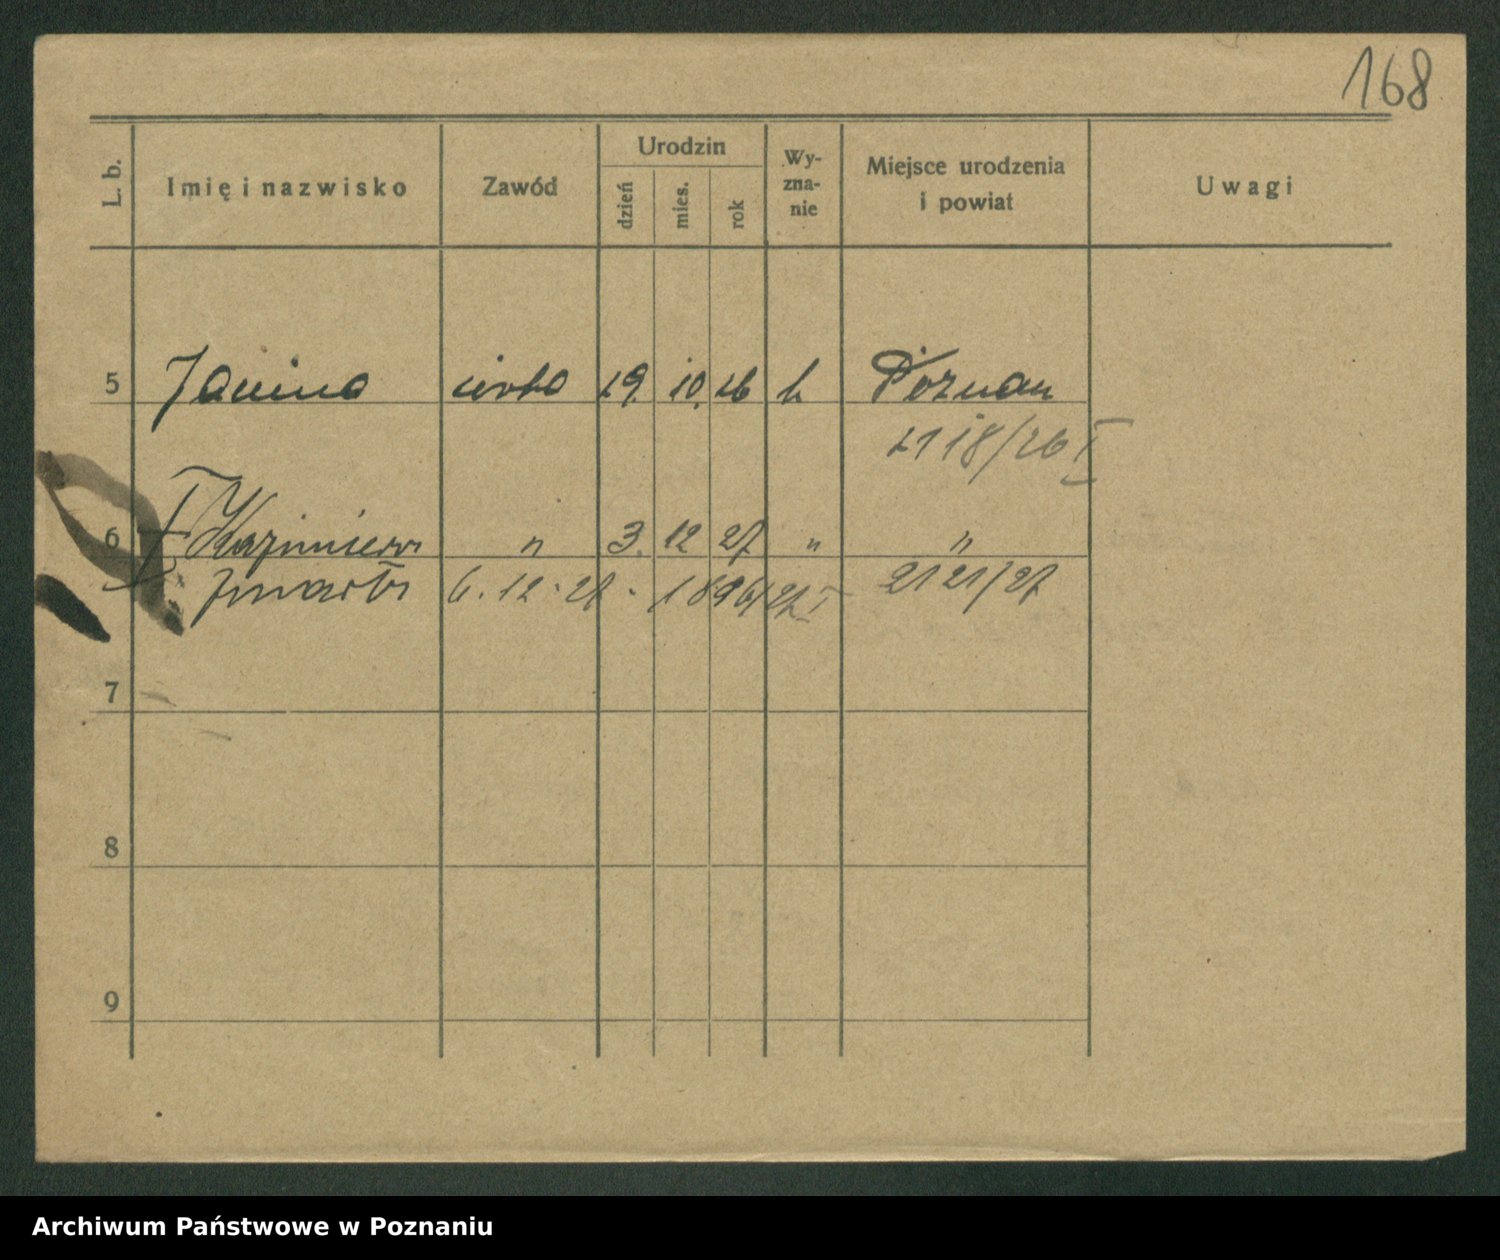 168
L. b. Imię i nazwisko Zawód Urodzin dzień mies. rok Wy-zna-nie Miejsce urodzenia i powiat Uwagi
5 Janina córka 29. 10. 26 k Poznań
2118/26 I
6 Kazimierz " 3. 12 27 " "
zmarła 6. 12. 27. 1896/27 I 2121/27
7
8
9
Archiwum Państwowe w Poznaniu